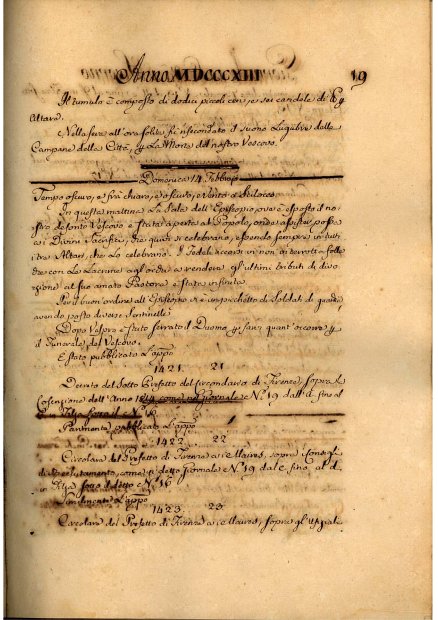 Anno MDCCCXIII
19
Il tumulo è composto di dodici piccoli ceri, e sei candele di
Altare.
Nella sera all'ora solita fù risecondato il suono lugubre delle
Campane della Città, p. la Morte del nostro Vescovo.
Domenica 14 Febbrajo
Tempo oscuro, e frà chiaro, e oscuro, e Vento di Scilocco.
In questa mattina La Sala dell'Episcopio, ove è esposto il no-
stro defonto Vescovo è stata aperta al Popolo, onde assister possa
ai Divini Sacrifizi, che quivi si celebrano, essendo sempre in tutti
i tre Altari, chi lo celebrano. I Fedeli accorsivi non interrotta folla
che con Le Lacrime agl'occhi a rendere gl'ultimi tributi di divo-
zione al suo amato Pastore è stata infinita.
Per il buon ordine all'Episcopio vi è un picchetto di Soldati di guardia
avendo posto diverse Sentinelle.
Dopo Vespro è stato serrato il Duomo p. fare quant'occorre p.
il Funerale del Vescovo.
È stato pubblicato L'app.o
1421. 21.
Decreto del Sotto Prefetto del Circondario di Firenze, sopra la
Coscrizione dell'Anno 1814. come nel Giornale N.o 19 dall' d. fino al
Filza sotto il N.o 16
Parimente pubblicato L'app.o
1422. 22
Circolare del Prefetto di Firenze ai Maires, sopra Consigli
di Reclutamento, come in detto Giornale N.o 19 dal e. fino al d.
Filza sotto detto N.o 16
Parimente L'app.o
1423 23
Circolare del Prefetto di Firenze ai Maires, sopra gl'